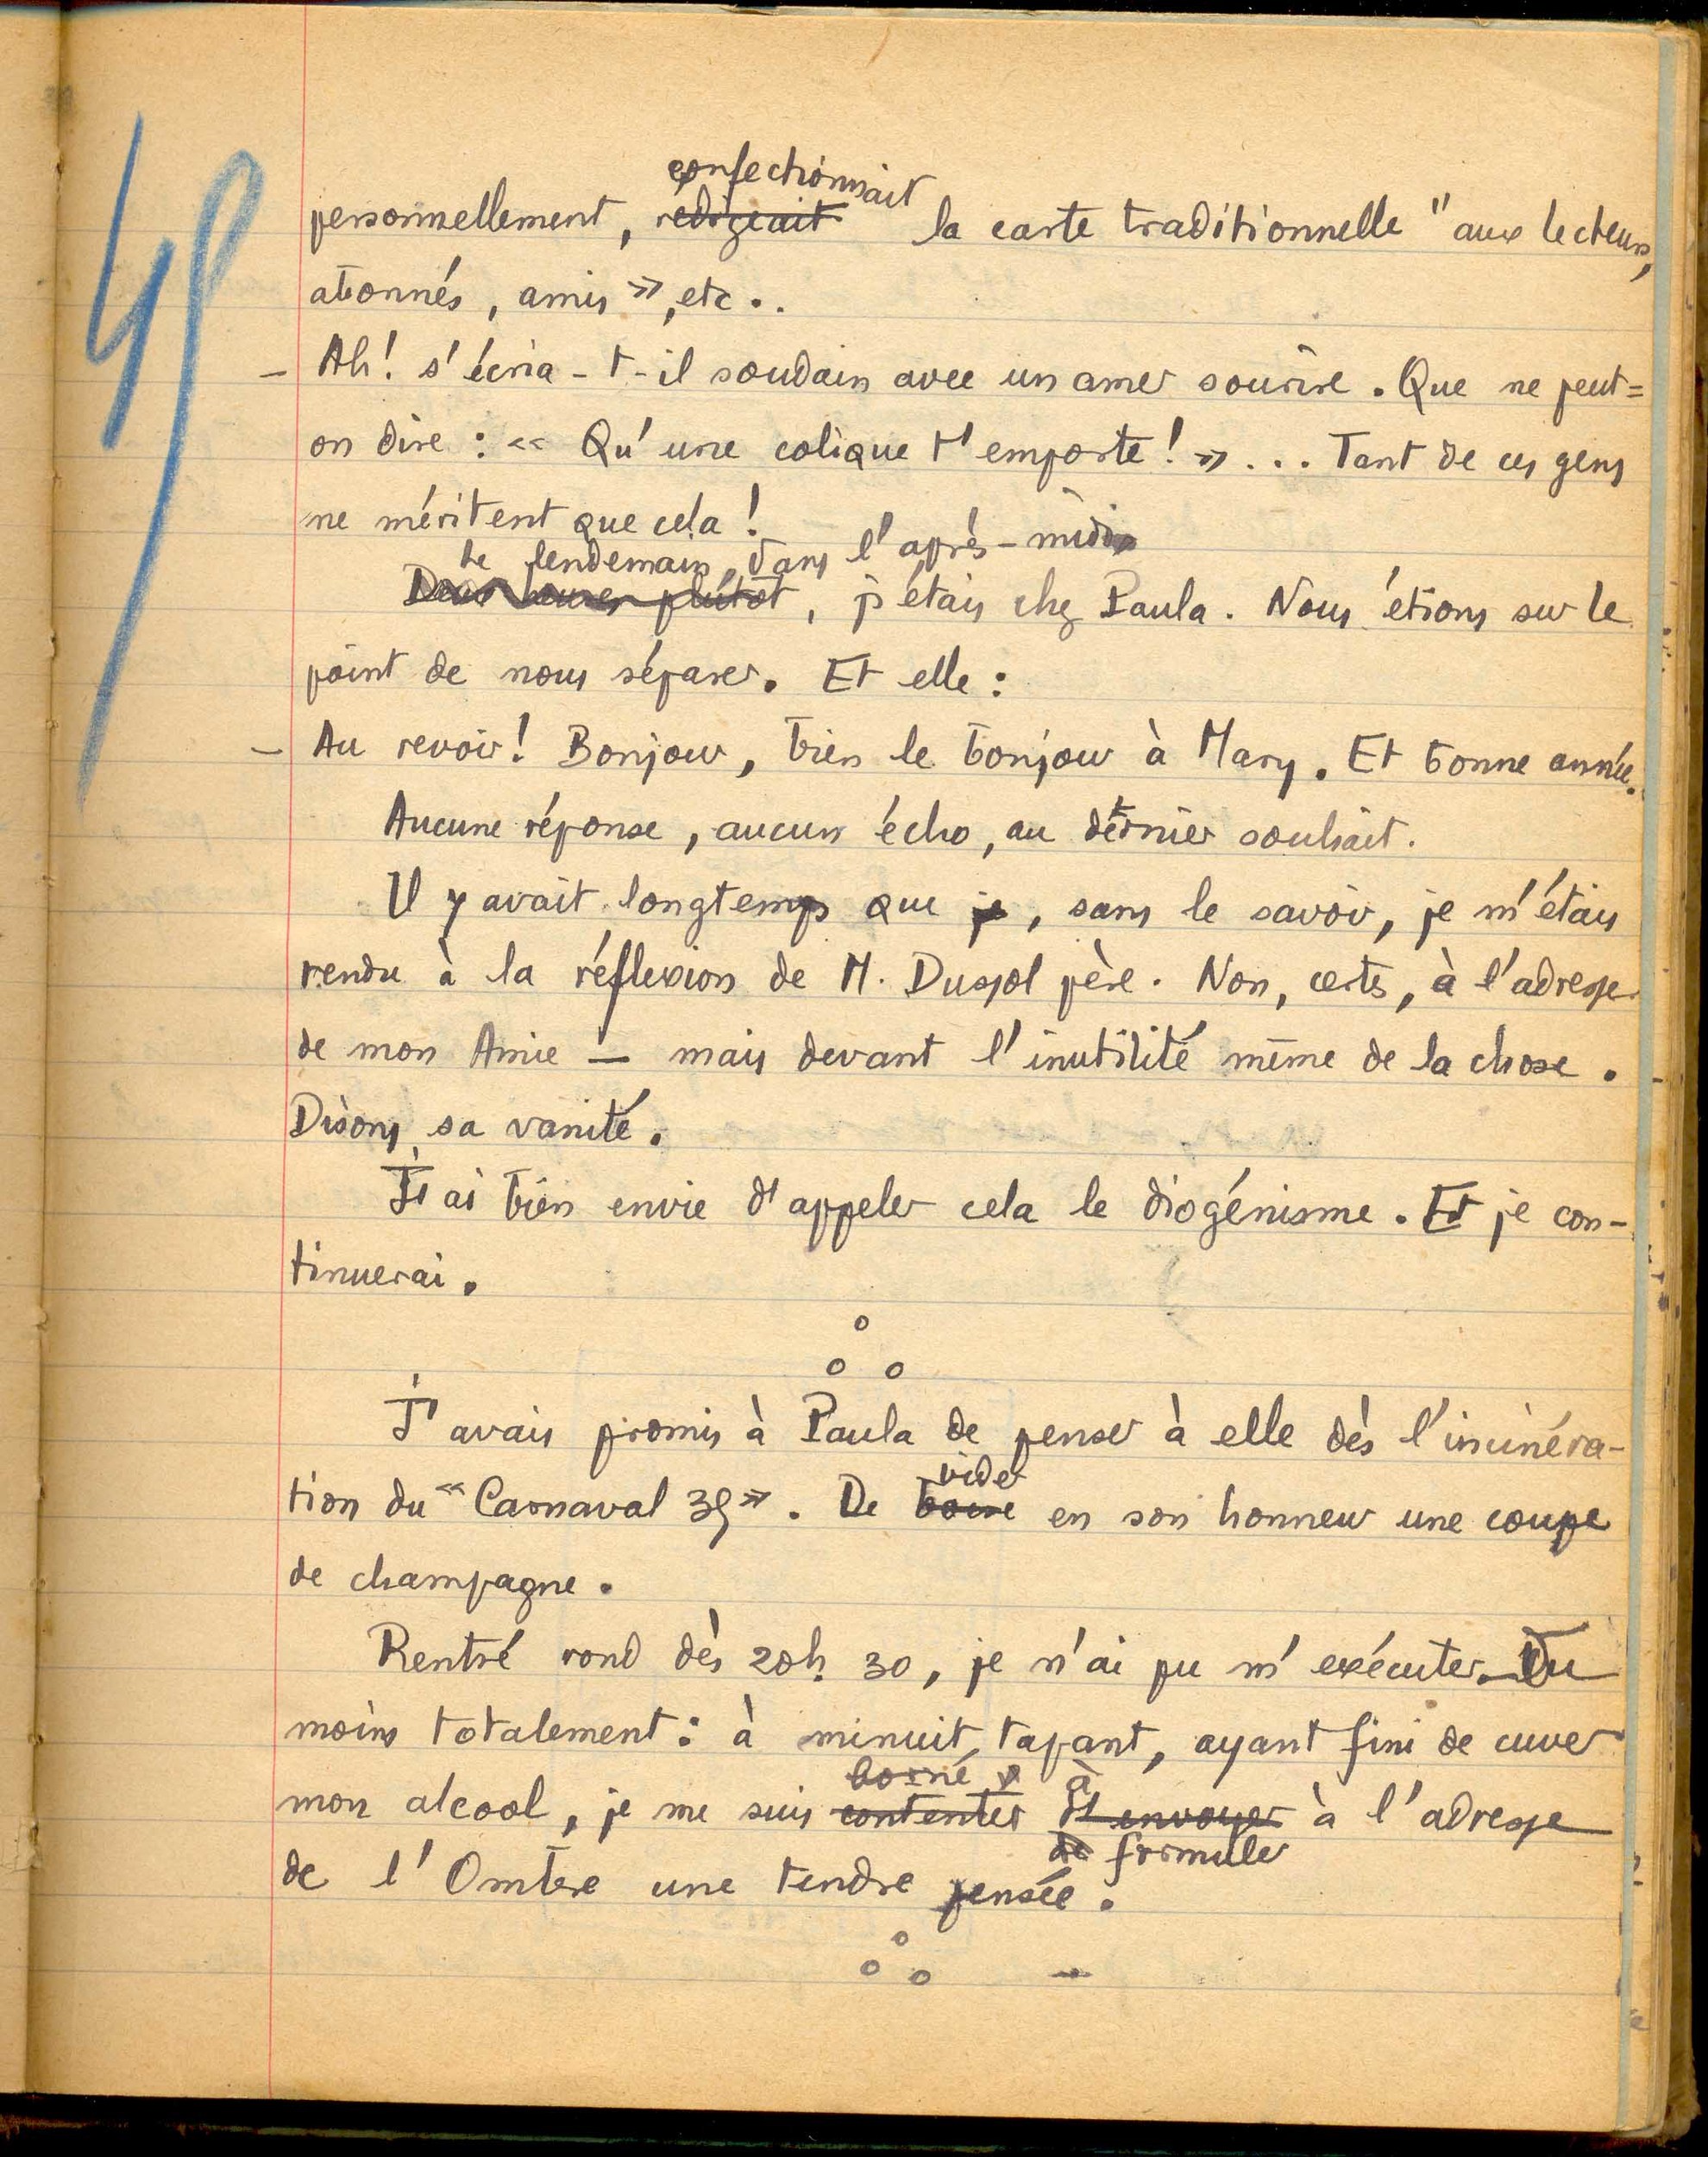 49
confectionnait
personnellement, redigeait la carte traditionnelle "aux lecteurs,
abonnés, amis », etc..
- Ah! s'écria-t-il soudain avec un amer sourire. Que ne peut=
on dire : « Qu'une colique t'emporte! »... Tant de ces gens
ne méritent que cela!
Le lendemain, dans l'après-midi
Deux heures plutôt, j'étais chez Paula. Nous étions sur le
point de nous séparer. Et elle :
- Au revoir! Bonjour, bien le bonjour à Mary. Et bonne année.
Aucune réponse, aucun écho, au dernier souhait.
Il y avait longtemps que je, sans le savoir, je m'étais
rendu à la réflexion de M. Dusjol père. Non, certes, à l'adresse
de mon Amie — mais devant l'inutilité même de la chose.
Disons, sa vanité.
J'ai bien envie d'appeler cela le diogénisme. Et je con-
tinuerai.
J'avais promis à Paula de penser à elle dès l'incinéra-
vider
tion du « Carnaval 39 ». De boire en son honneur une coupe
de champagne.
Rentré rond dès 20h. 30, je n'ai pu m'exécuter. Du
moins totalement : à minuit tapant, ayant fini de cuver
borné à
mon alcool, je me suis contenter d'envoyer à l'adresse
de formuler
de l'Ombre une tendre pensée.